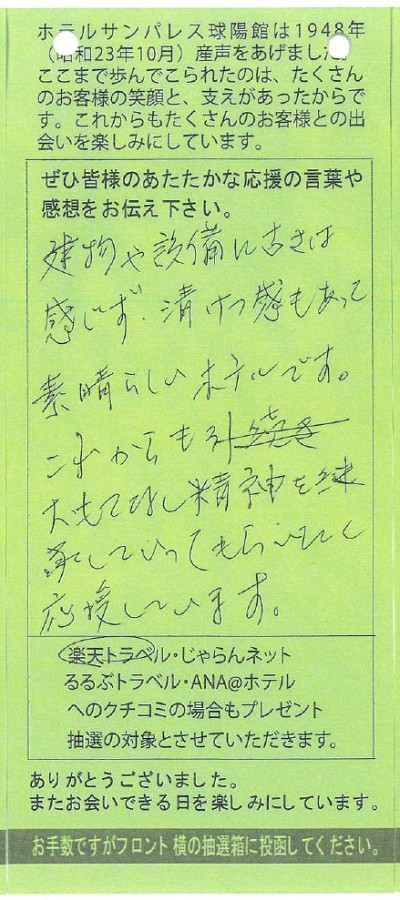 ホテルサンパレス球陽館は1948年
（昭和23年10月）産声をあげました。
ここまで歩んでこられたのは、たくさん
のお客様の笑顔と、支えがあったからで
す。これからもたくさんのお客様との出
会いを楽しみにしています。
ぜひ皆様のあたたかな応援の言葉や
感想をお伝え下さい。
建物や設備に古さは
感じず、清けつ感もあって
素晴らしいホテルです。
これからも引続き
大もてなし精神を継
承していってもらいたく
応援しています。
楽天トラベル・じゃらんネット
るるぶトラベル・ANA@ホテル
へのクチコミの場合もプレゼント
抽選の対象とさせていただきます。
ありがとうございました。
またお会いできる日を楽しみにしています。
お手数ですがフロント 横の抽選箱に投函してください。